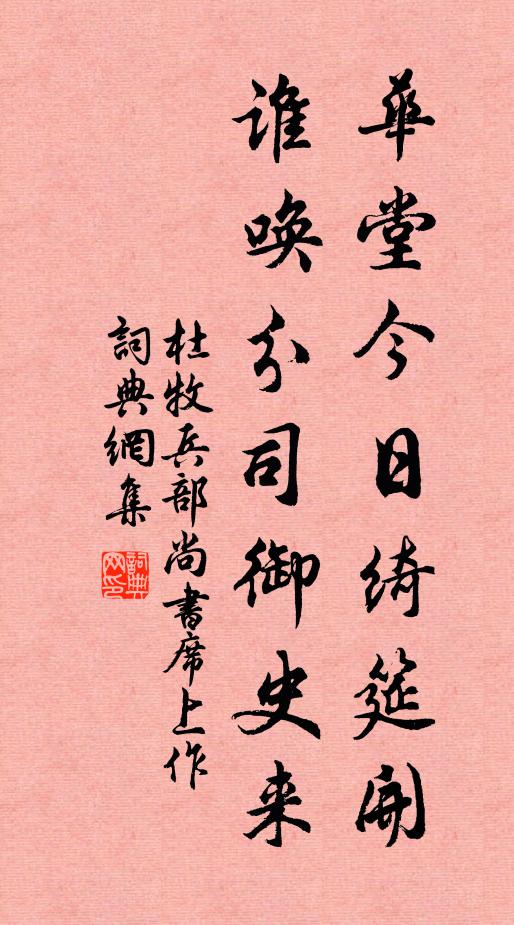 華堂今日綺筵開
誰喚分司御史来
杜牧兵部尚書席上作
詞典網集
詞典網印